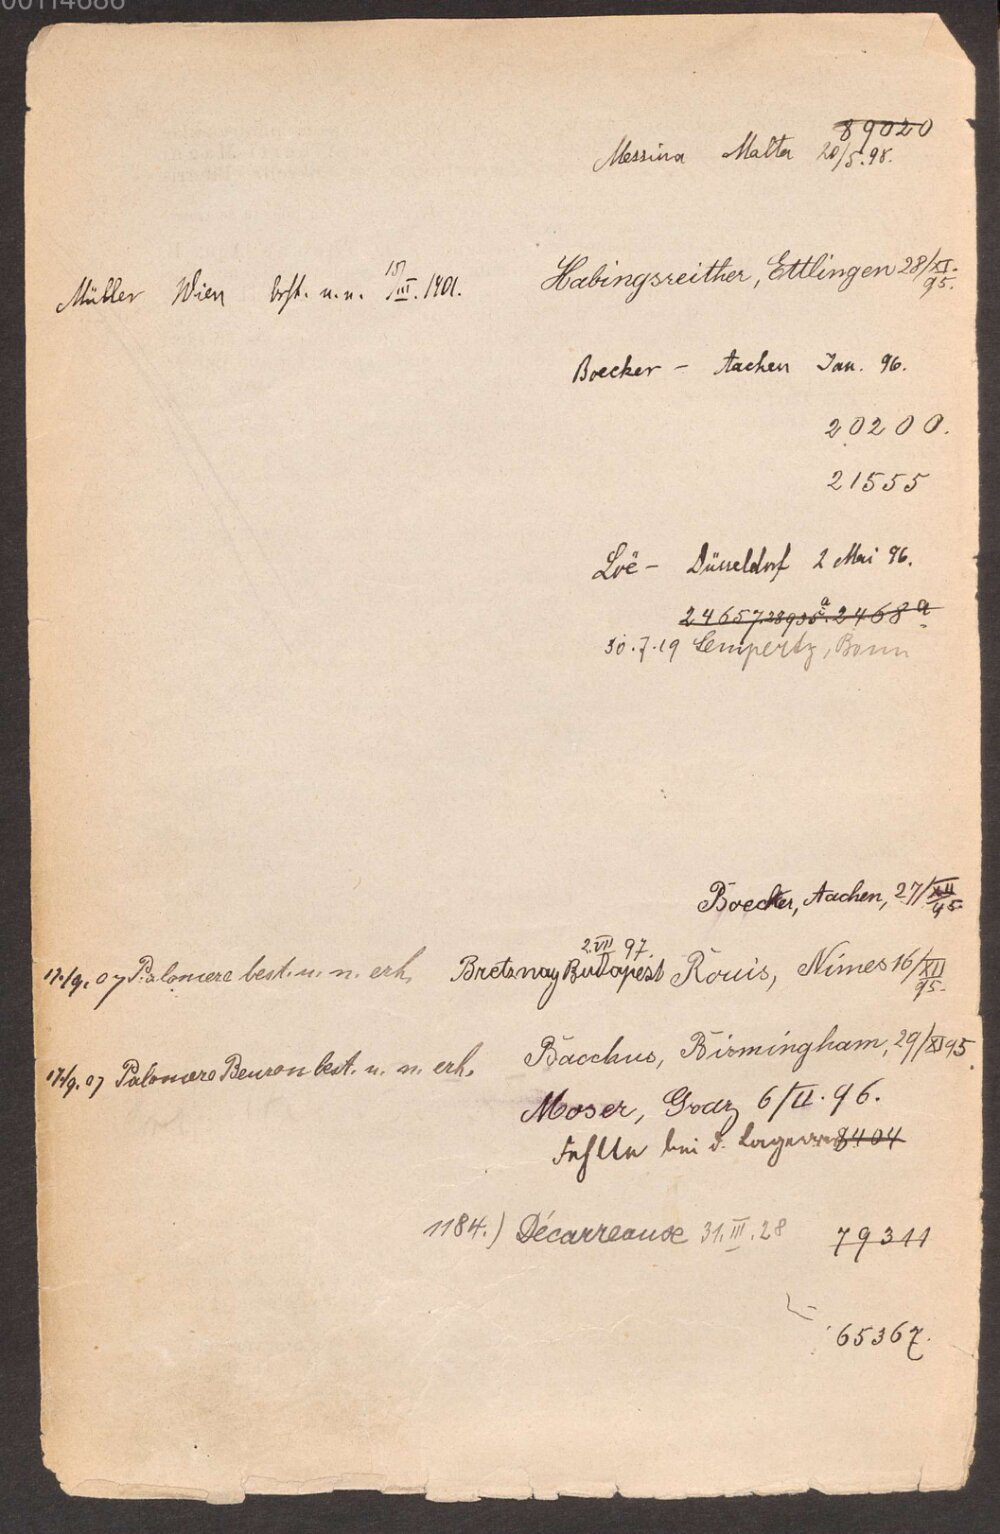 00114686
89020
Messina Malta 20/5.98.
Müller Wien best. u. n. 15/III.1901.
Habingsreither, Ettlingen 28/XI. 95.
Boecker – Aachen Jan. 96.
20200.
21555
Loë – Düsseldorf 2 Mai 96.
24657.28935a.2468a
30.7.19 Lempertz, Bonn
Boecker, Aachen, 27/XII 95
2.VII 97.
17./9.07 Palomere best. u. n. erh. Bretznay Budapest Rouis, Nimes 16/XII 95.
Bacchus, Birmingham, 29/XI 95.
17./9.07 Palomero Beuron best. u. n. erh.
Moser, Graz 6/II.96.
Fehlte bei d. 8404
1184.) Décarreaux 31.III.28 79311
65367.